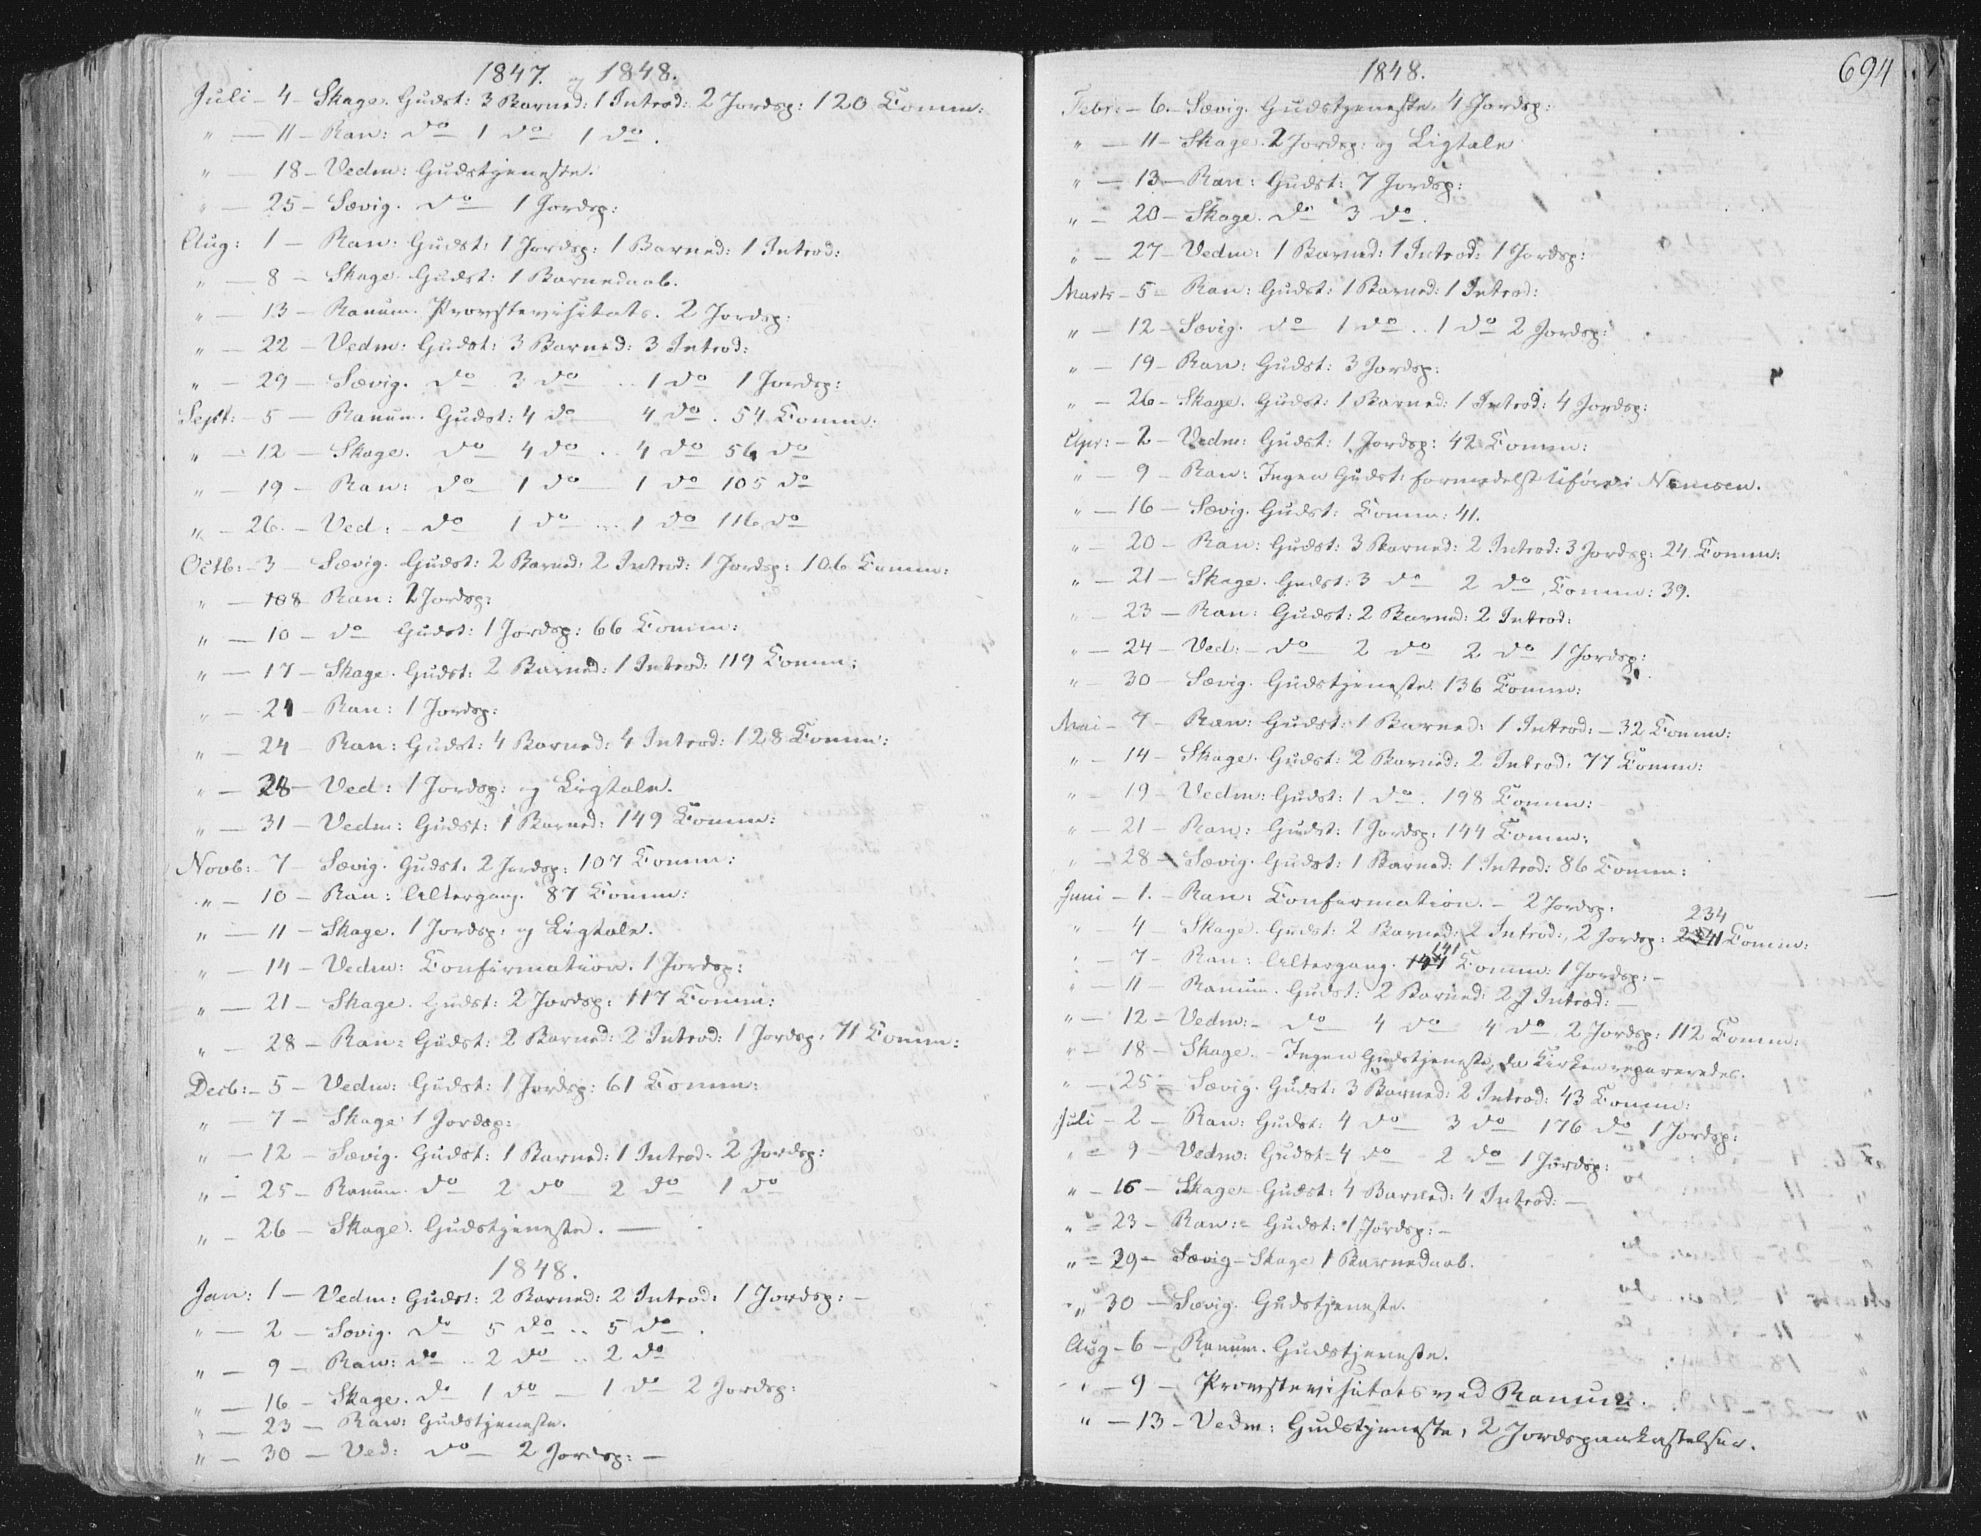 1847. og 1848.
Juli - 4 - Skage. Gudst: 3 Barned: 1 Introd: 2 Jordsp: 120 Comm:
" - 11 - Ran: do 1 do 1 do.
" - 18 - Vedm: Gudstjeneste.
" - 25 - Sævig. do 1 Jordsp:
Aug: 1 - Ran: Gudst: 1 Jordsp: 1 Barned: 1 Introd:
" - 8 - Skage. Gudst: 1 Barnedaab.
" - 13 - Ranum. Provstevisitats. 2 Jordsp:
" - 22 - Vedm: Gudst: 3 Barned: 3 Introd:
" - 29 - Sævig. do 3 do .. 1 do 1 Jordsp:
Sept: - 5 - Ranum. Gudst: 4 do 4 do. 54 Comm:
" - 12 - Skage. do 4 do .. 4 do 56 do
" - 19 - Ran: do 1 do 1 do 105 do
" - 26 - Ved: - do 1 do ... 1 do 116 do
Octb: - 3 - Sævig. Gudst: 2 Barned: 2 Introd: 1 Jordsp: 106 Comm:
" - 8 Ran: 2 Jordsp:
" - 10 - do Gudst: 1 Jordsp: 66 Comm:
" - 17 - Skage. Gudst: 2 Barned: 1 Introd: 119 Comm:
" - 21 - Ran: 1 Jordsp:
" - 24 - Ran: Gudst: 4 Barned: 4 Introd: 128 Comm:
" - 28 - Ved: 1 Jordsp: og Ligtale.
" - 31 - Vedm: Gudst: 1 Barned: 149 Comm:
Novb: - 7 - Sævig. Gudst: 2 Jordsp: 107 Comm:
" - 10 - Ran: Altergang. 87 Comm:
" - 11 - Skage. 1 Jordsp: og Ligtale.
" - 14 - Vedm: Confirmation. 1 Jordsp:
" - 21 - Skage. Gudst: 2 Jordsp: 117 Comm:
" - 28 - Ran: Gudst: 2 Barned: 2 Introd: 1 Jordsp: 71 Comm:
Decb: - 5 - Vedm: Gudst: 1 Jordsp: 61 Comm:
" - 7 - Skage 1 Jordsp:
" - 12 - Sævig. Gudst: 1 Barned: 1 Introd: 2 Jordsp:
" - 25 - Ranum. do 2 do 2 do 1 do
" - 26 - Skage. Gudstjeneste. -
1848.
Jan: 1 - Vedm: Gudst: 2 Barned: 2 Introd: 1 Jordsp: -
" - 2 - Sævig. do 5 do .. 5 do.
" - 9 - Ran: do .. 2 do .. 2 do
" - 16 - Skage. do 1 do - 1 do 2 Jordsp:
" - 23 - Ran: Gudstjeneste.
" - 30 - Ved: do 2 Jordsp: -
1848.
694
Febr: - 6. - Sævig. Gudstjeneste. 4 Jordsp:
" - 11 - Skage. 2 Jordsp: og Ligtale
" - 13 - Ran: Gudst: 7 Jordsp:
" - 20 - Skage. do 3 do.
" - 27 - Vedm: 1 Barned: 1 Introd: 1 Jordsp:
Marts - 5 - Ran: Gudst: 1 Barned: 1 Introd:
" - 12 - Sævig. do 1 do .. 1 do 2 Jordsp:
" - 19 - Ran: Gudst: 3 Jordsp:
" - 26 - Skage. Gudst: 1 Barned: 1 Introd: 4 Jordsp:
Apr: - 2 - Vedm: Gudst: 1 Jordsp: 42 Comm:
" - 9 - Ran: Ingen Gudst: formedelst Uføre i Namsen.
" - 16 - Sævig. Gudst: Comm: 41.
" - 20 - Ran: Gudst: 3 Barned: 2 Introd: 3 Jordsp: 24 Comm:
" - 21 - Skage. Gudst: 3 do 2 do, Comm: 39.
" - 23 - Ran: Gudst: 2 Barned: 2 Introd:
" - 24 - Ved: - do 2 do 2 do 1 Jordsp:
" - 30 - Sævig. Gudstjeneste. 136 Comm:
Mai - 7 - Ran: Gudst: 1 Barned: 1 Introd: - 32 Comm:
" - 14 - Skage. Gudst: 2 Barned: 2 Introd: 77 Comm:
" - 19 - Vedm: Gudst: 1 do. 198 Comm:
" - 21 - Ran: Gudst: 1 Jordsp: 144 Comm:
" - 28 - Sævig. Gudst: 1 Barned: 1 Introd: 86 Comm:
Juni - 1. - Ran: Confirmation. - 2 Jordsp:
" - 4 - Skage. Gudst: 2 Barned: 2 Introd:, 2 Jordsp: 234 Comm:
" - 7 - Ran: Altergang. 141 Comm: 1 Jordsp: -
" - 11 - Ranum. Gudst: 2 Barned: 2 Introd: -
" - 12 - Vedm: - do 4 do 4 do 2 Jordsp: 112 Comm:
" - 18 - Skage. - Ingen Gudstjeneste, da Kirken repareredes.
" - 25 - Sævig. Gudst: 3 Barned: 2 Introd: 43 Comm:
Juli - 2 - Ran: Gudst: 4 do 3 do 176 do 1 Jordsp:
" - 9 - Vedm: Gudst - 4 do - 2 do 1 Jordsp:
" - 16 - Skage - Gudst: 4 Barned: 4 Introd: -
" - 23 - Ran: - Gudst: 1 Jordsp: -
" - 29 - Sævig - Skage 1 Barnedaab.
" 30 - Sævig. Gudstjeneste.
Aug - 6 - Ranum. Gudstjeneste.
" - 9 - Provstevisitats ved Ranum.
" - 13 - Vedm: Gudstjeneste, 2 Jordspaakastelser.